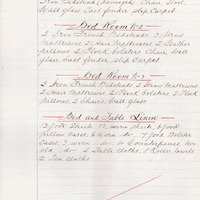 Iron Bedstead (damaged) Chair Stool
Wall glass Cast fender, slip Carpet
Bed Room No 2
2 Iron French Bedsteads 2 Straw
Mattresses 2 Hair Mattresses 2 Feather
pillows 2 Flock Bolsters Chair Wall
glass Cast fender, slip Carpet
Bed Room No 3
2 Iron French Bedsteads 2 Straw Mattresses
2 Hair Mattresses 2 Flock Bolsters 2 Flock
Pillows, 2 Chairs, Wall glass
Bed and Table Linen
3 good Sheets, 10 worn Sheets, 6 good
Pillow Cases, 6 worn do 7 good Bolster
Cases, 3 worn do Counterpanes two
old do 2 Table Cloths 1 Roller towels
2 Tea Cloths